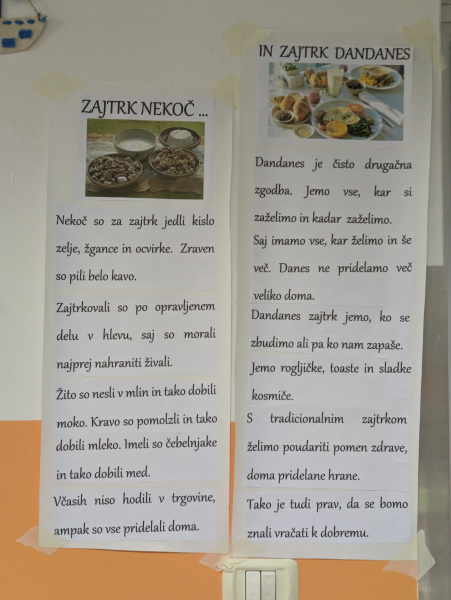 ZAJTRK NEKOČ ...
Nekoč so za zajtrk jedli kislo
zelje, žgance in ocvirke. Zraven
so pili belo kavo.
Zajtrkovali so po opravljenem
delu v hlevu, saj so morali
najprej nahraniti živali.
Žito so nesli v mlin in tako dobili
moko. Kravo so pomolzli in tako
dobili mleko. Imeli so čebelnjake
in tako dobili med.
Včasih niso hodili v trgovine,
ampak so vse pridelali doma.
IN ZAJTRK DANDANES
Dandanes je čisto drugačna
zgodba. Jemo vse, kar si
zaželimo in kadar zaželimo.
Saj imamo vse, kar želimo in še
več. Danes ne pridelamo več
veliko doma.
Dandanes zajtrk jemo, ko se
zbudimo ali pa ko nam zapaše.
Jemo rogljičke, toaste in sladke
kosmiče.
S tradicionalnim zajtrkom
želimo poudariti pomen zdrave,
doma pridelane hrane.
Tako je tudi prav, da se bomo
znali vračati k dobremu.